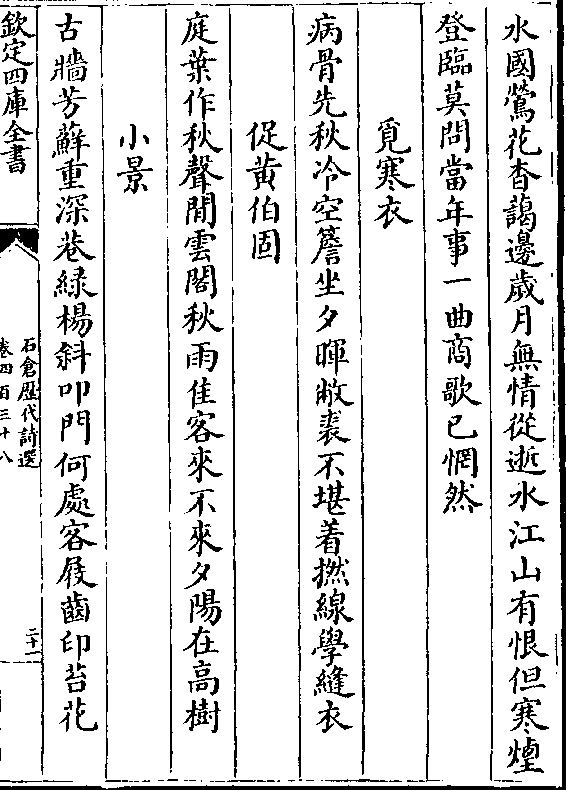 水國鶯花杳藹邊歳月無情從逝水江山有恨但寒煙
登臨莫問當年事一曲商歌已惘然
覓寒衣
病骨先秋冷空簷坐夕暉敝裘不堪着撚線學縫衣
促黃伯固
庭葉作秋聲閒雲閣秋雨佳客來不來夕陽在高樹
小景
古牆芳蘚重深巷緑楊斜叩門何處客屐齒印苔花
欽定四庫全書
石倉歴代詩選
卷四百三十八
二十一